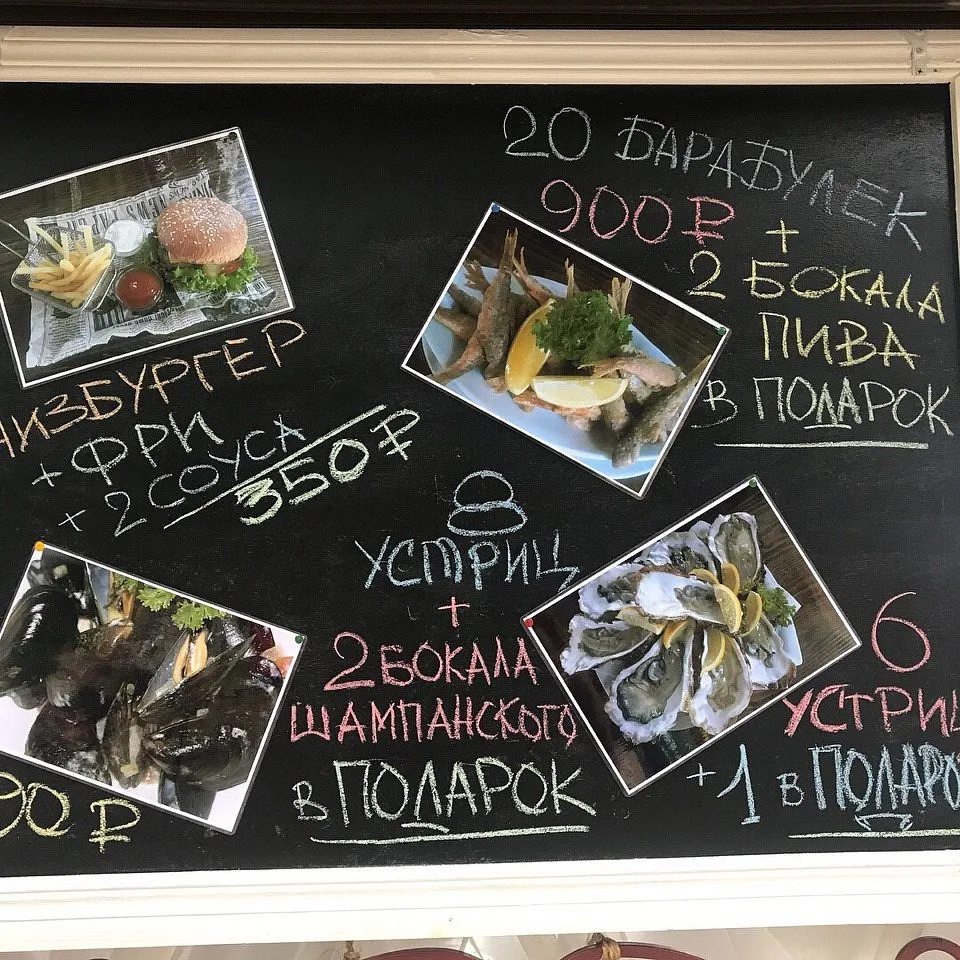 20 БАРАБУЛЕК
900₽ +
2 БОКАЛА
ПИВА
В ПОДАРОК
ЧИЗБУРГЕР
+ ФРИ
+ 2 СОУСА
350₽
8
УСТРИЦ
+
2 БОКАЛА
ШАМПАНСКОГО
В ПОДАРОК
90 ₽
6
УСТРИЦ
+1 В ПОДАРО